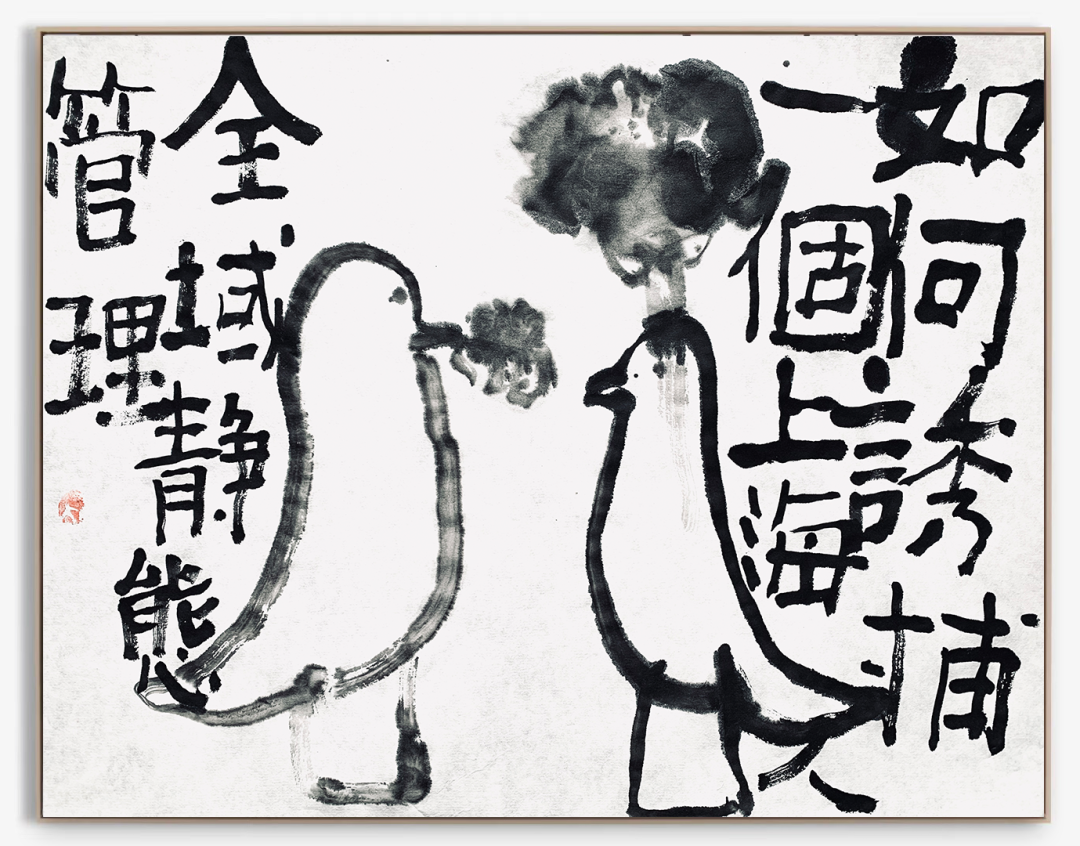 如何誘捕
一個上海
全域静態
管理